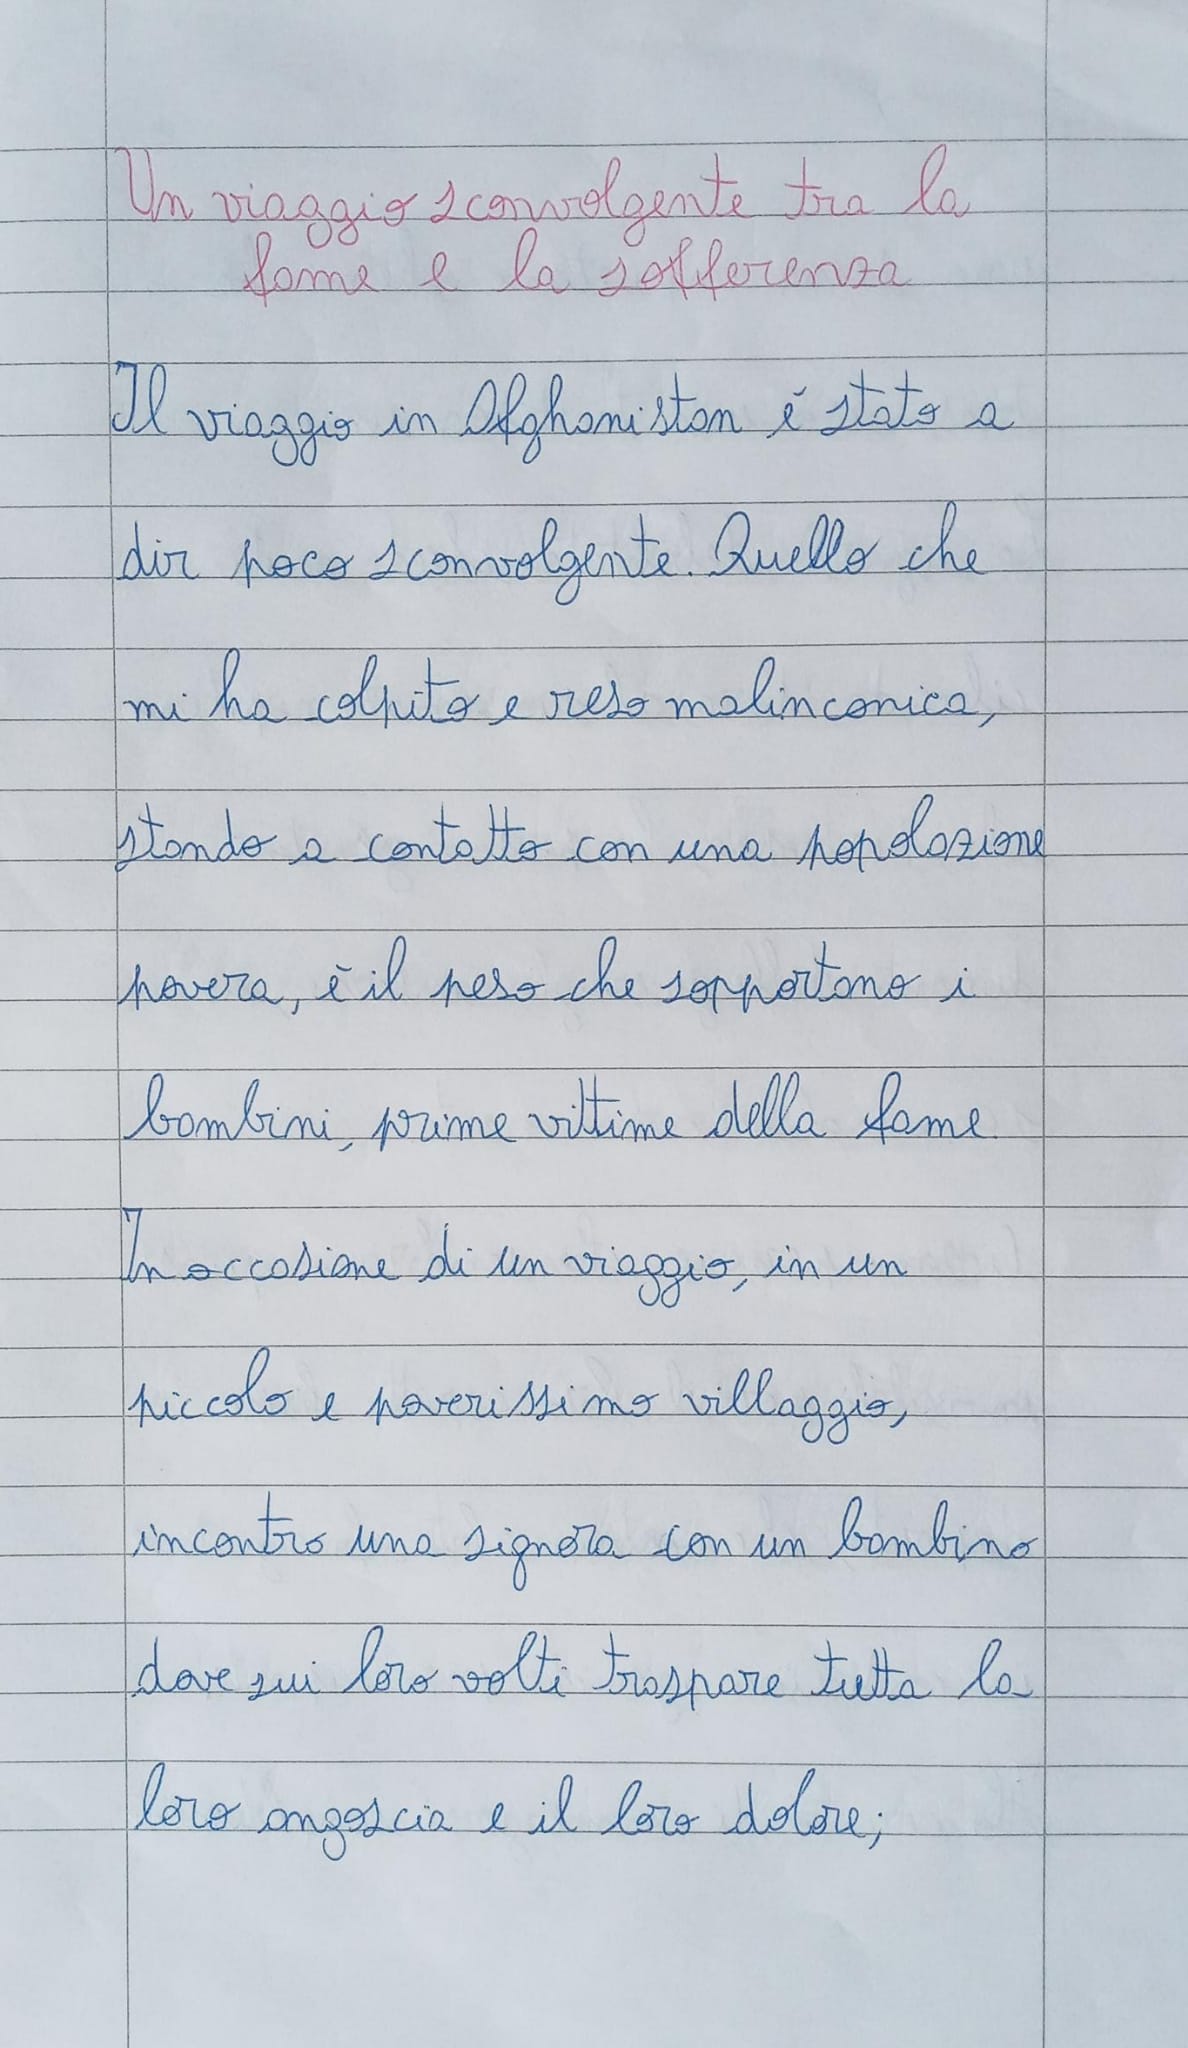 Un viaggio sconvolgente tra la
fame e la sofferenza
Il viaggio in Afghanistan é stato a
dir poco sconvolgente. Quello che
mi ha colpito e reso malinconica,
stando a contatto con una popolazione
povera, è il peso che sopportano i
bambini, prime vittime della fame.
In occasione di un viaggio, in un
piccolo e poverissimo villaggio,
incontro una signora con un bambino
dove sui loro volti traspare tutta la
loro angoscia e il loro dolore;